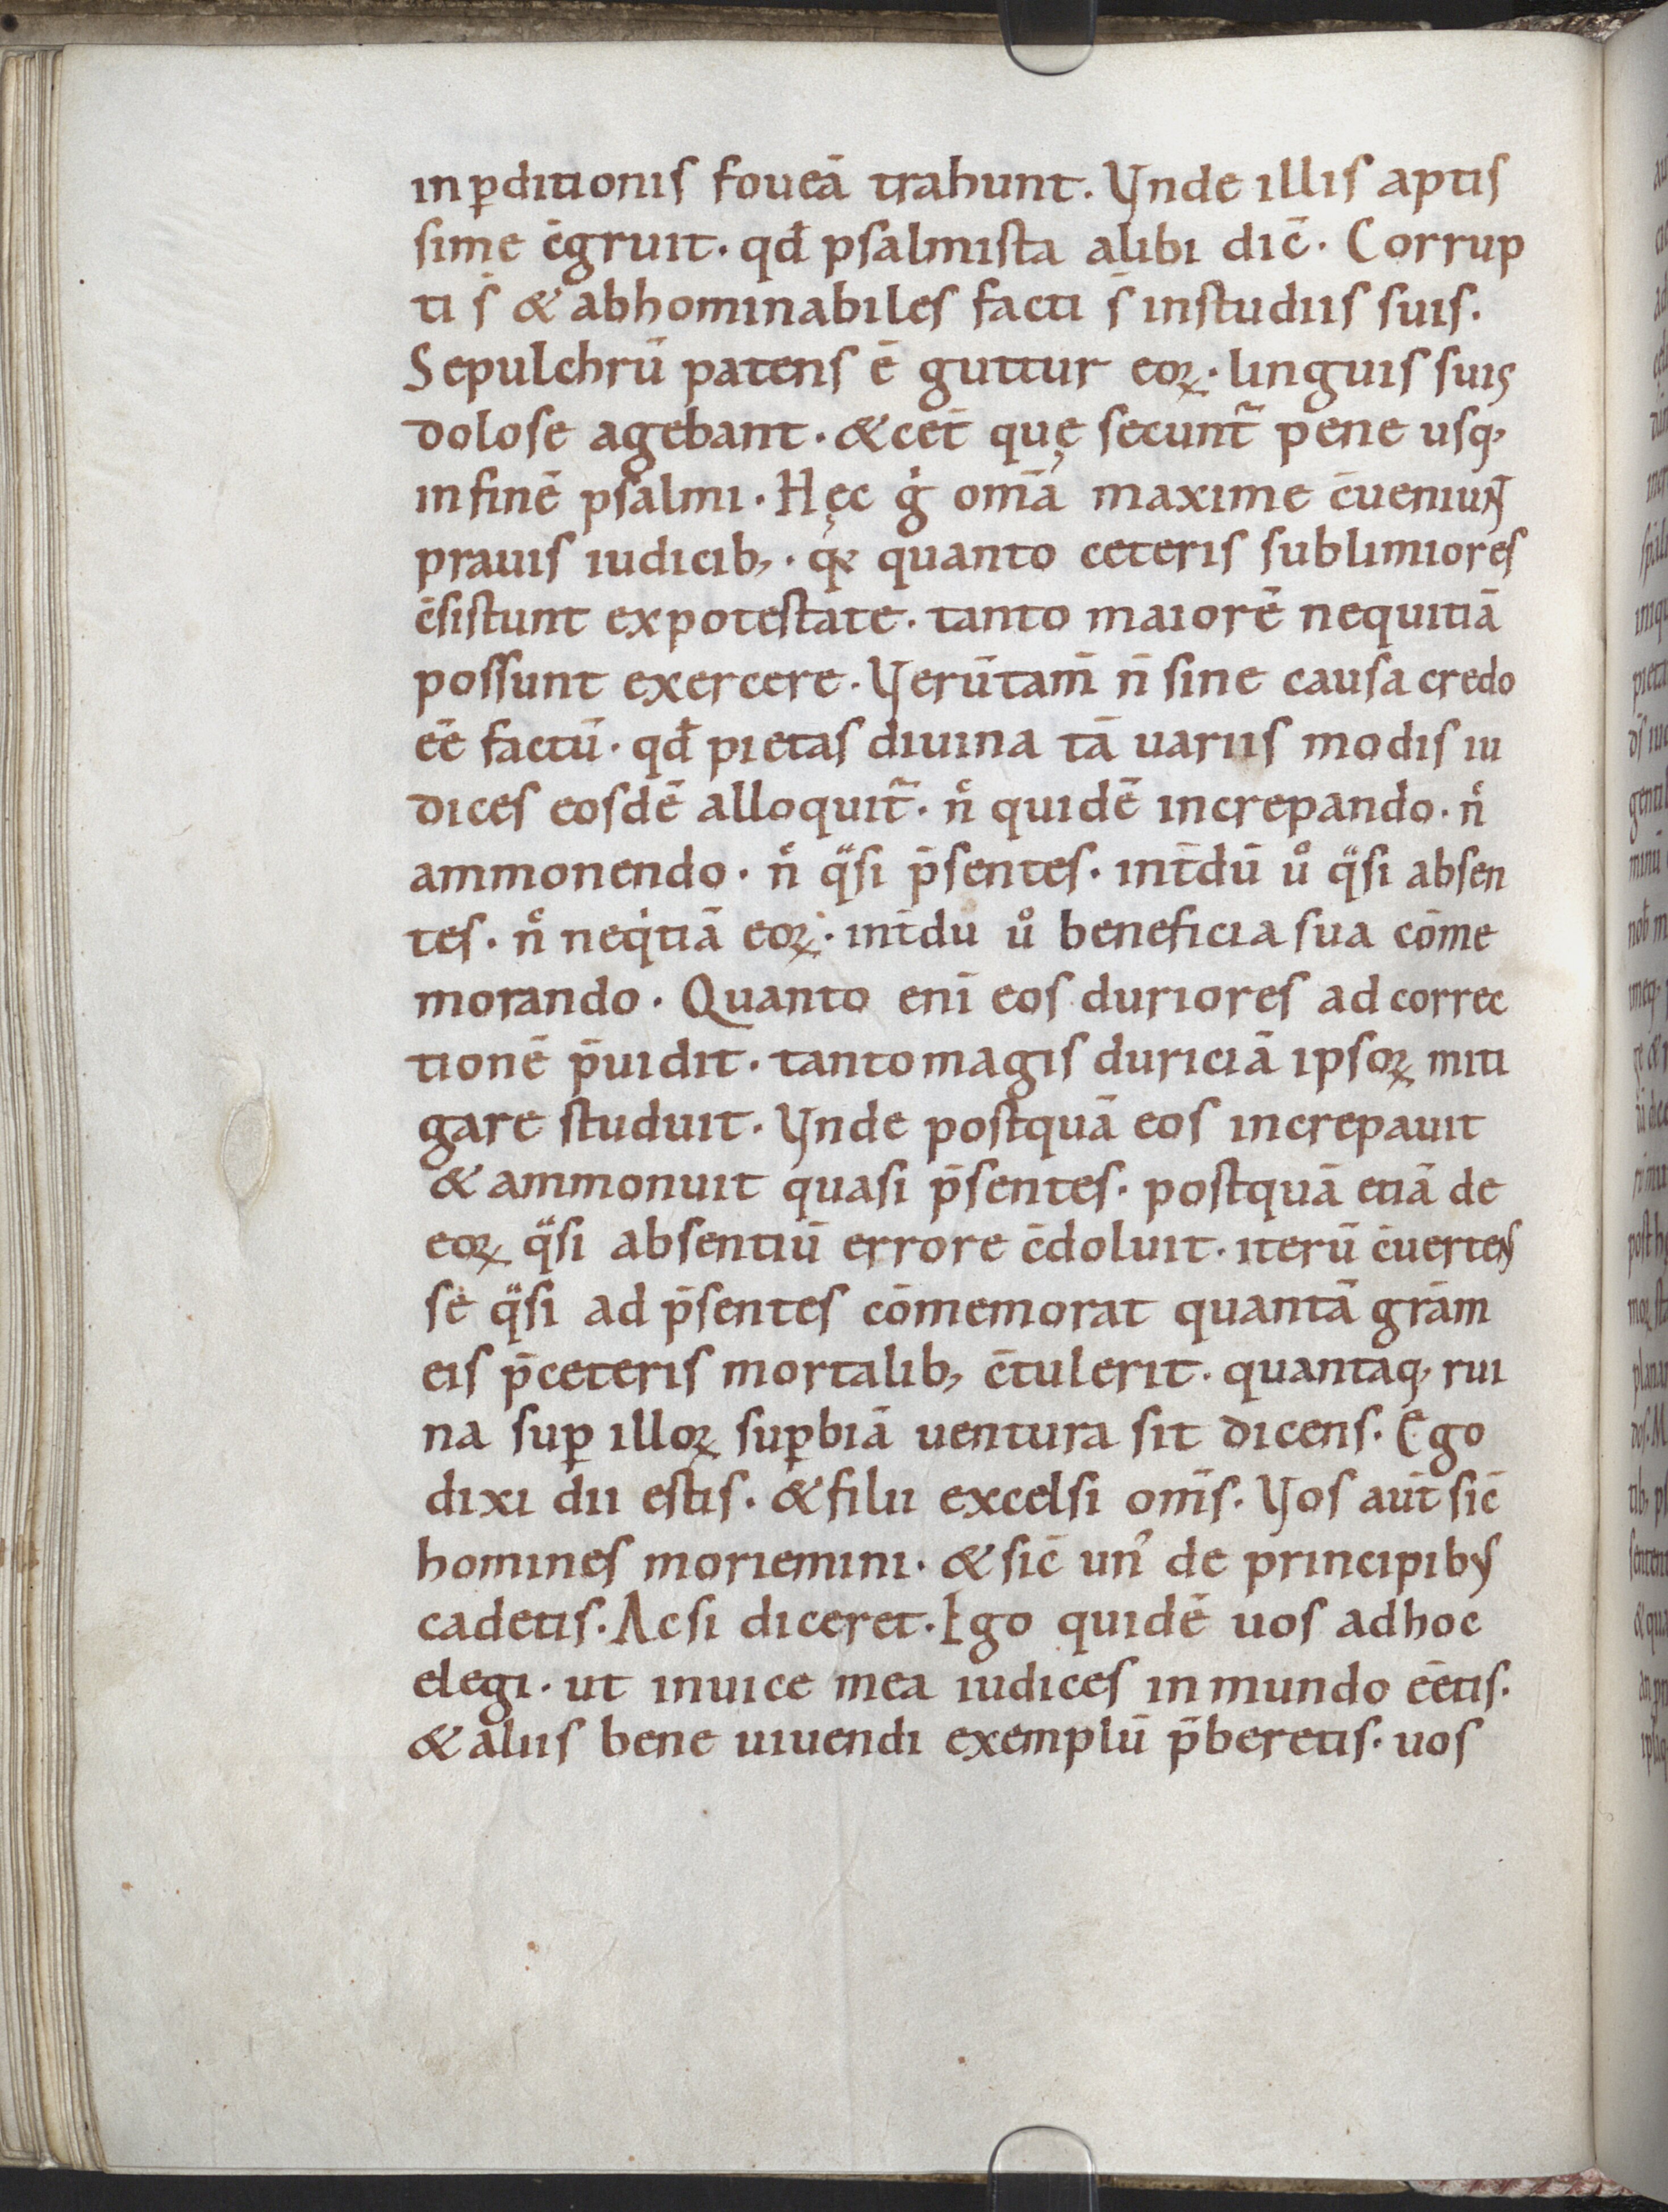 in ꝑditionis foueā trahunt. Vnde illis aptis
sime c̄gruit. qđ psalmista alibi dic̄. Corrup
ti s̄ & abhominabiles facti s̄ in studiis suis.
Sepulchrū patens ē guttur eoꝝ. linguis suis
dolose agebant. & cet̄ quę secunt᷑ pene usq,
in finē psalmi. Hęc g̍ om̄a maxime c̄ueniunt
prauis iudicib,. q̍a quanto ceteris sublimiores
c̄sistunt ex potestate. tanto maiorē nequitiā
possunt exercere. Verūtam̄ n̄ sine causa credo
ee̅ factū. qđ pietas diuina tā uariis modis iu
dices eosdē alloquit᷑. nͨ quidē increpando. nͨ
ammonendo. nͨ qͣsi p̄sentes. int̄dū uͦ qͣsi absen
tes. nͨ neq̍tiā eoꝝ. int̄dū uͦ beneficia sua cōme
morando. Quanto eni̅ eos duriores ad correc
tionē p̄uidit. tanto magis duriciā ipsoꝝ miti
gare studuit. Vnde postquā eos increpauit
& ammonuit quasi p̄sentes. postquā etiā de
eoꝝ qͣsi absentiū errore c̄doluit. iterū c̄uertens
se qͣsi ad p̄sentes cōmemorat quantā grām
eis p̄ ceteris mortalib, c̄tulerit. quantaq, rui
na suꝑ illoꝝ suꝑbiā uentura sit dicens. Ego
dixi dii estis. & filii excelsi om̄s. Vos aut̄ sic̄
homines moriemini. & sic̄ un᾽ de principibus
cadetis. Ac si diceret. Ego quidē uos ad hoc
elegi. ut in uice mea iudices in mundo ee̅tis.
& aliis bene uiuendi exemplū p̄beretis. uos